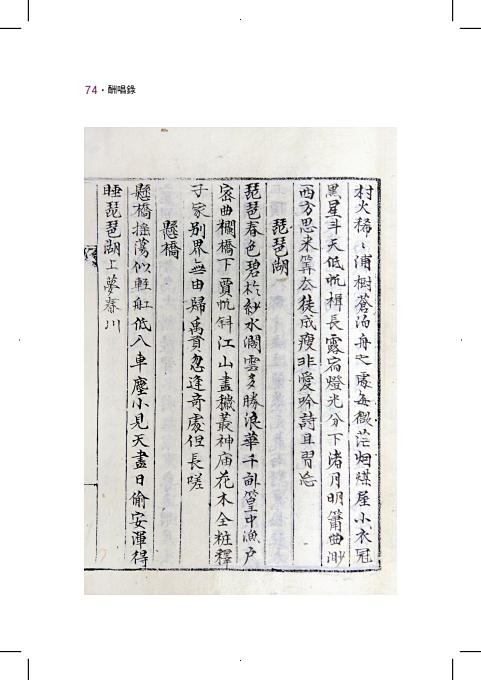 74 · 酬唱錄
村火稀〻浦樹蒼泊舟之處每微茫烟煤屋小衣冠
黑星斗天低帆楫長露宿燈光分下渚月明簫曲渺
西方思來筭去徒成瘦非愛吟詩且習忘
琵琶湖
琵琶春色碧於紗水濶雲多勝浪華千畝篁中漁戶
密曲欄橋下賈帆斜江山盡穢叢神庙花木全粧釋
子家別界無由歸禹貢忽逢奇處但長嗟
懸橋
懸橋搖蕩似輕舡低八車塵小見天盡日偷安渾得
睡琵琶湖上夢春川